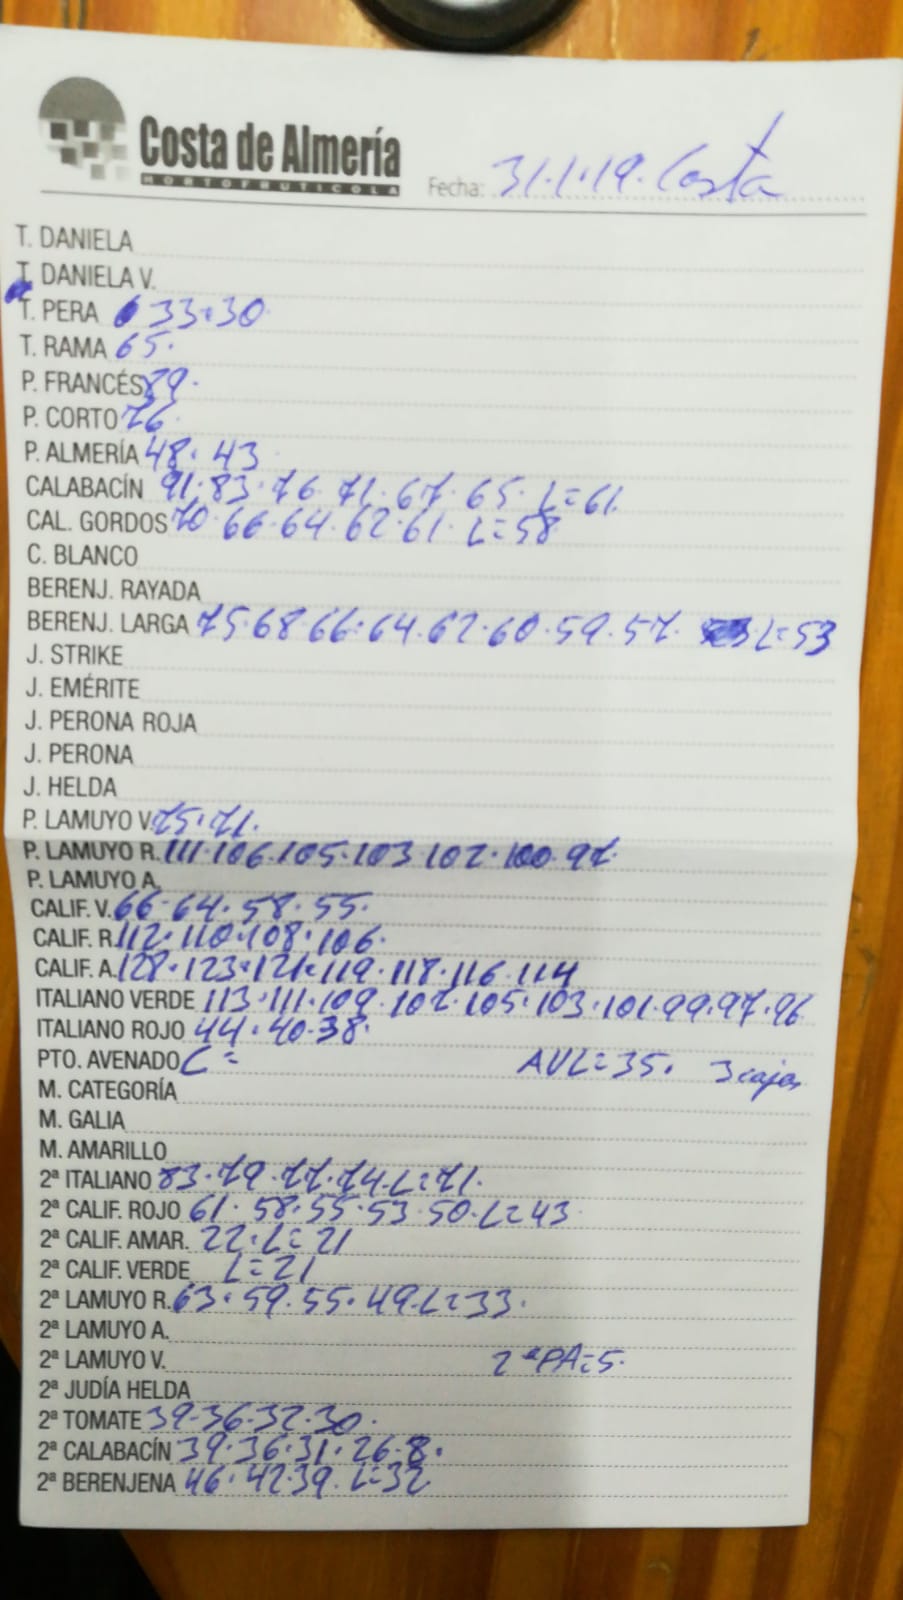 Costa de Almería
HORTOFRUTICOLA
Fecha: 31·1·19· Costa
T. DANIELA
T. DANIELA V.
T. PERA 33·30
T. RAMA 65·
P. FRANCÉS 89·
P. CORTO 76
P. ALMERÍA 48· 43
CALABACÍN 91·83·76·71·67·65·L=61
CAL. GORDOS 70·66·64·62·61·L=58
C. BLANCO
BERENJ. RAYADA
BERENJ. LARGA 75·68·66·64·62·60·59·57· L=53
J. STRIKE
J. EMÉRITE
J. PERONA ROJA
J. PERONA
J. HELDA
P. LAMUYO V. 75·71·
P. LAMUYO R. 111·106·105·103·102·100·97·
P. LAMUYO A.
CALIF. V. 66·64·58·55·
CALIF. R. 112·110·108·106·
CALIF. A. 128·123·121·119·118·116·114
ITALIANO VERDE 113·111·109·107·105·103·101·99·97·96
ITALIANO ROJO 44·40·38·
PTO. AVENADO L= AVL=35· 3 cajas
M. CATEGORÍA
M. GALIA
M. AMARILLO
2ª ITALIANO 83·79·77·74·L=71·
2ª CALIF. ROJO 61·58·55·53·50·L=43
2ª CALIF. AMAR. 22·L=21
2ª CALIF. VERDE L=21
2ª LAMUYO R. 63·59·55·49·L=33·
2ª LAMUYO A.
2ª LAMUYO V. 2ªPA=5·
2ª JUDÍA HELDA
2ª TOMATE 39·36·32·30·
2ª CALABACÍN 39·36·31·26·8·
2ª BERENJENA 46·42·39·L=32